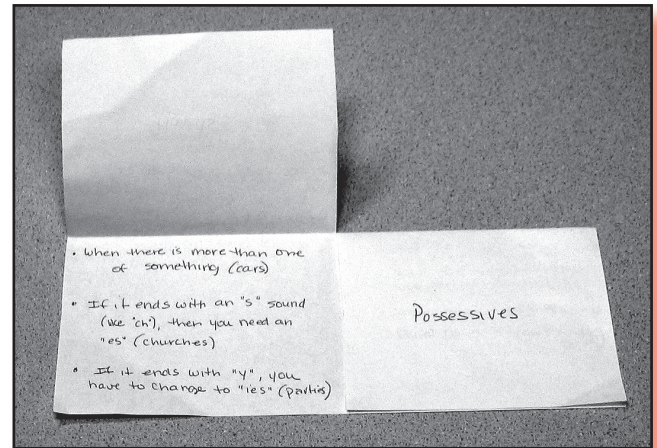 • when there is more than one
of something (cars)
• If it ends with an "s" sound
(like "ch"), then you need an
"es" (churches)
• If it ends with "y", you
have to change to "ies" (parties)
Possessives